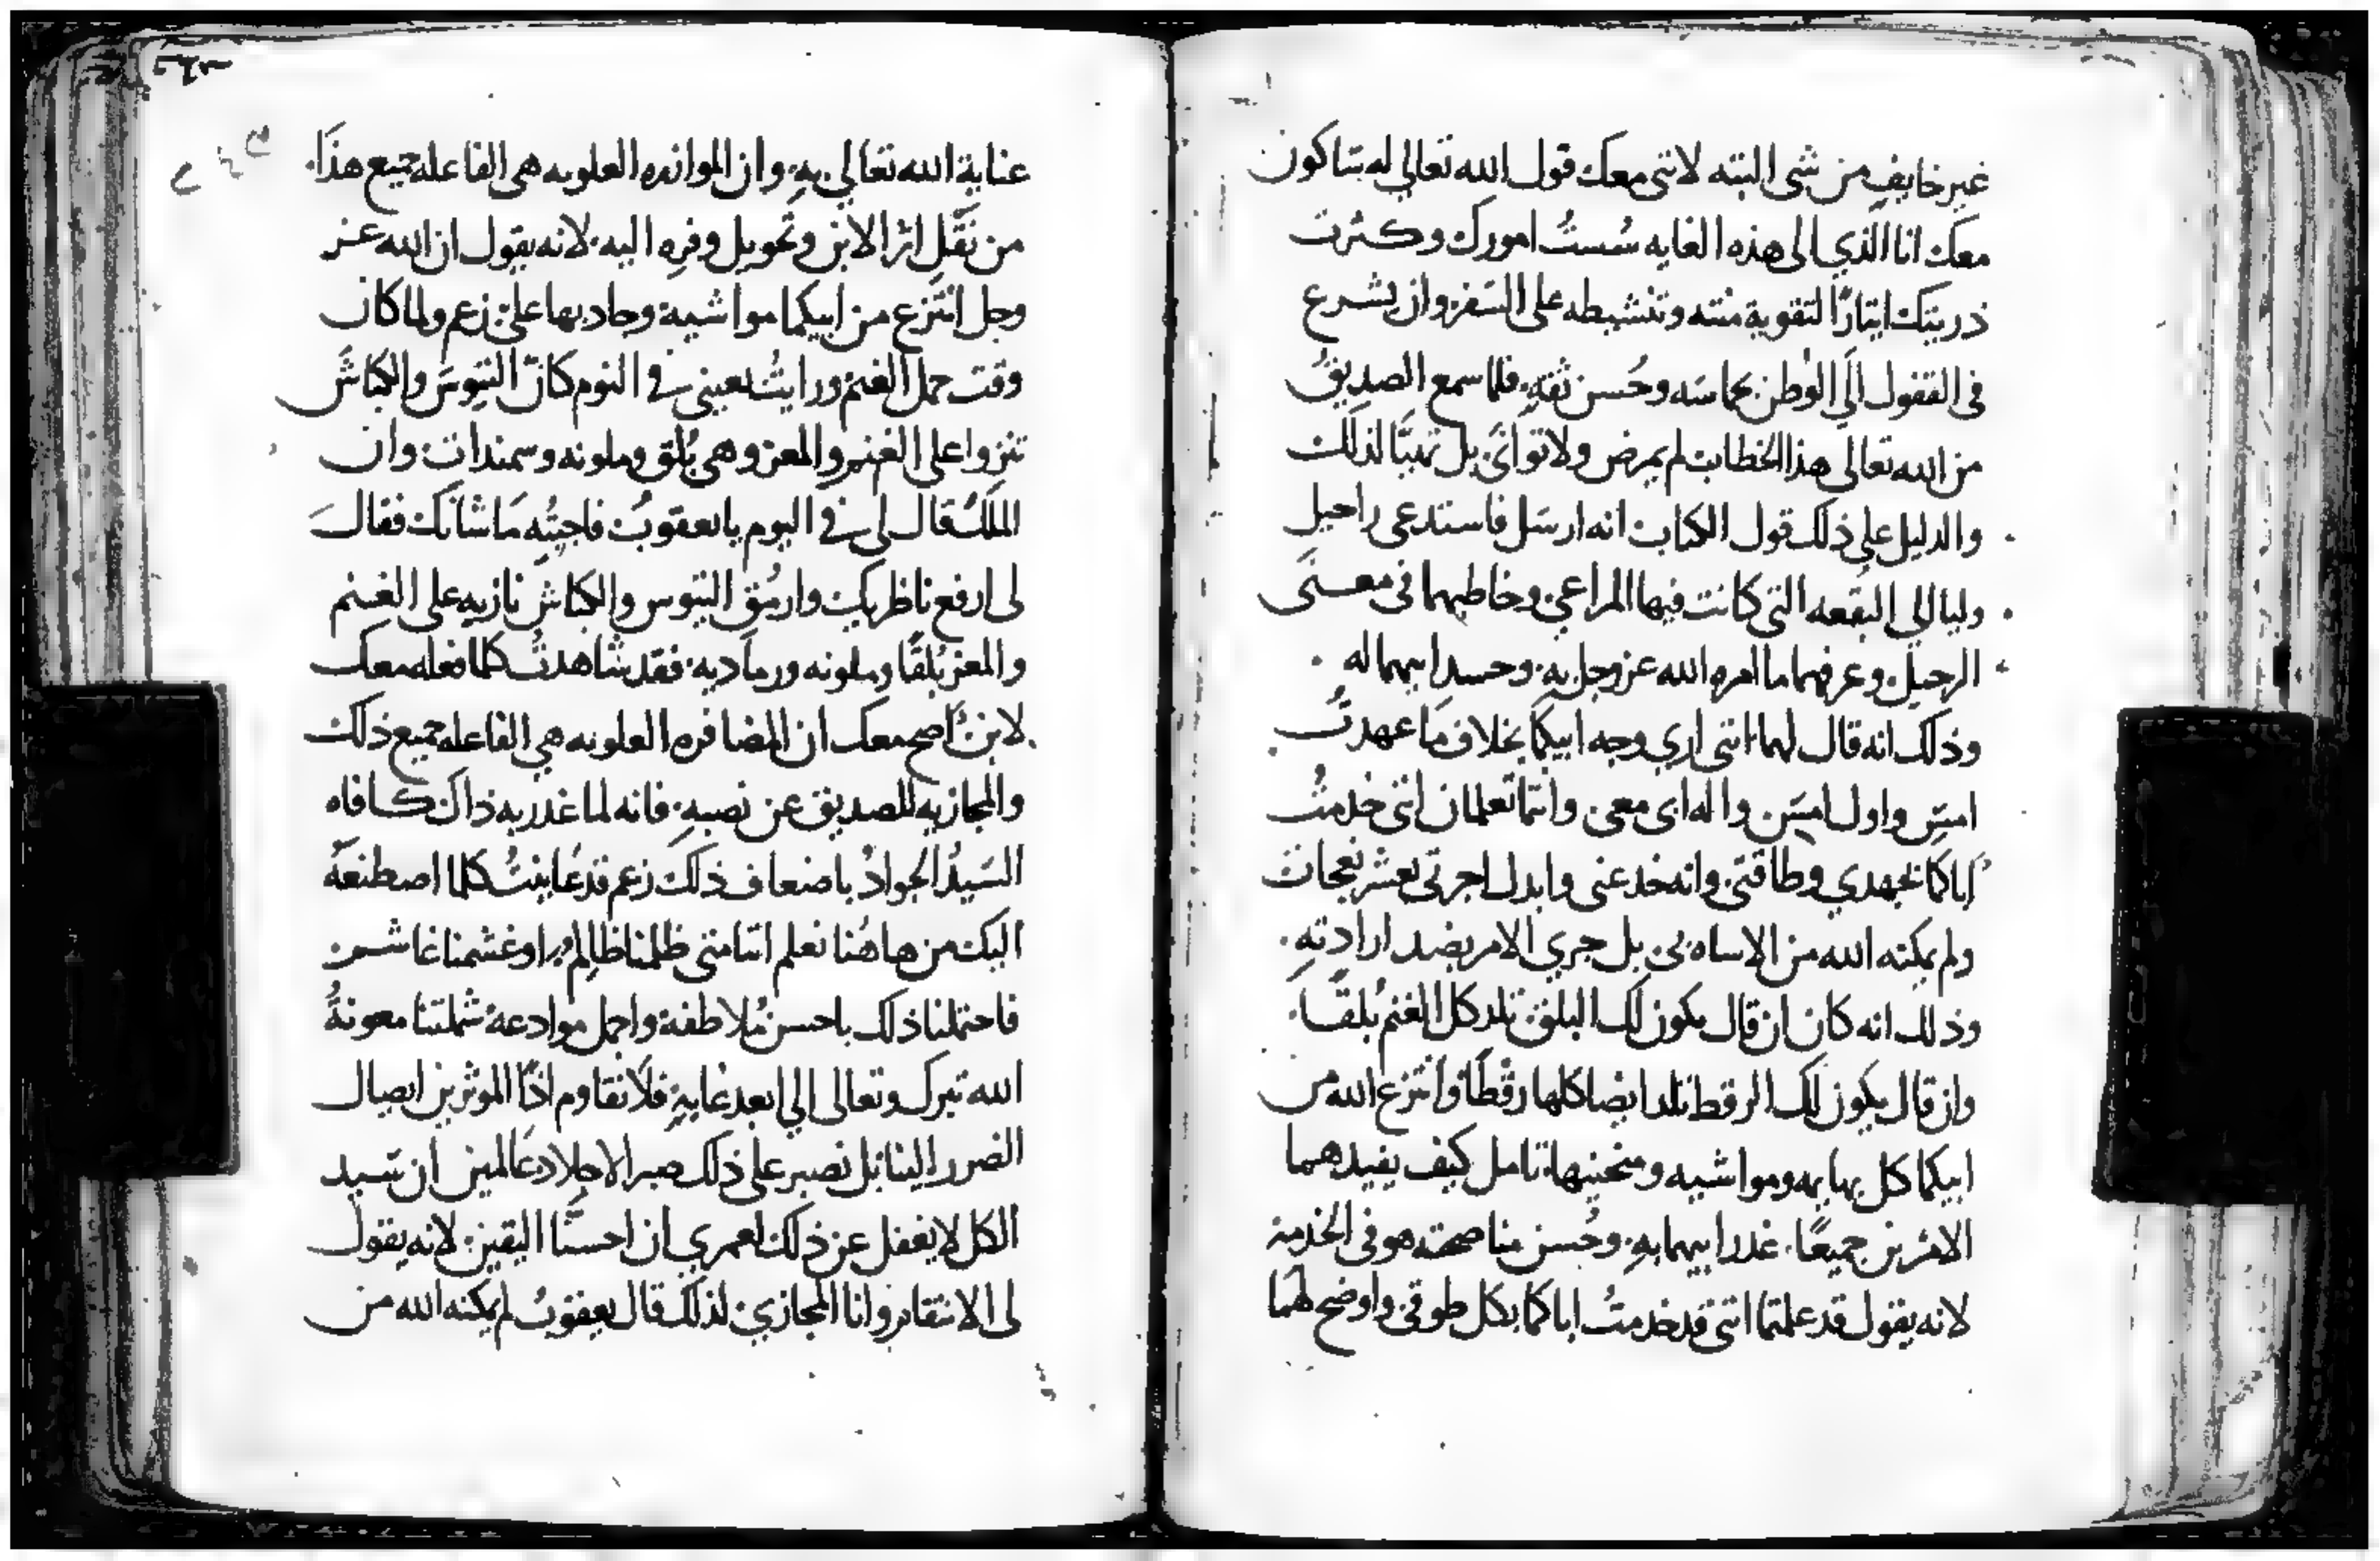 غير خايفٍ من شي البته لانني معك قول الله تعالي له سَاكون
معك انا الذي الى هذه الغايه سُستُ امورك وكثرت
ذريتك ايثارًا لتقوية مُنته وتنشيطه على السَفر وان يشرع
في القفول الَي الوطن بحماسَه وحُسن ثقةٍ فلما سمع الصديقُ
من الله تعالى هذا الخطاب لم يمرض ولا توانَي بل تهيَّا لذلك
والدليل علي ذلك قول الكتاب انه ارسَل فاستدعى راحيل
وليا الي البقعه التي كانت فيها المراعي وخاطبهما في معنَى
الرحيل وعرفهما ما امره الله عز وجل به وحسد ابيهما له
وذلك انه قال لهما انني اري وجه ابيكما بخلاف مَا عهدتُ
امسَ واول امسَ واله ابي معي وانتما تعلمان انني خدمتُ
اباكما بجهدي وطاقتي وانه خدعني وابدل اجرتي بعشر نعجات
ولم يمكنه الله من الاساه بي بل جري الامر بضد ارادتهِ
وذلك انه كان ان قال يكون لك البلق تلد كل الغنم بُلقًا
وان قال يكون لك الرقط تلد ايضا كلها رقْطًا وانتزع الله من
ابيكما كل بهايمه ومواشيه ومنحنيها تامل كيف يفيدهما
الامرين جميعًا غدر ابيهما بهِ وحُسن مناصحته هو في الخدمة
لانه يقول قد علمتما انني قد خدمتُ اباكما بكل طوقي واوضح لهمَا
عناية الله تعَالي بهِ وان الموازره العلويه هي الفاعله جميع هذَا
من نَقْل اثر الابن وتَحويل وفرِه اليه لانه يقول ان الله عز
وجل انتَزع من ابيكما مواشيه وجاد بها عليَّ زعم ولما كان
وقت حمل الغنم ورايتُ بعيني في النوم كانَّ التيوسَ والكباشَ
تنزوا على الغنم والمعز وهي بُلق وملونه وسمندات وان
الملَكُ قال لي في اليوم يا يعقوبُ فاجبتُه مَا شانَك فقالَ
لى ارفع ناظريك وارمُق التيوس والكباش نازيه على الغنم
والمعز بُلقًا وملونه ورمادية فقد شاهدتُ كلما فعله معك
لابنُ اصح معك ان المضافره العلويه هي الفاعله جميع ذلك
والمجازيه للصديق عن نصبهِ فانه لما غدر به ذاك كافاه
السَيدُ الجوادُ باضعاف ذلك زعم قد عَاينتُ كلما اصطنعهَ
اليك من هاهُنا نعلم اننا متى ظلمنا ظالم او غشمنا غاشم
فاحتملنا ذلك باحسن مُلاطفة واجمل موادعة شملتنا معونةُ
الله تبرك وتعالى الي ابعد غايةٍ فلَا نقاوم اذًا الموثرين ايصال
الضرر الينا بل نصبر على ذلك صبر الاجلاد عَالمين ان سَيد
الكل لا يغفل عن ذلك لعمري ان احسنَّا اليقين لانه يقول
لى الانتقام وانا المجازي لذلك قال يعقوبُ لم يمكنه الله من